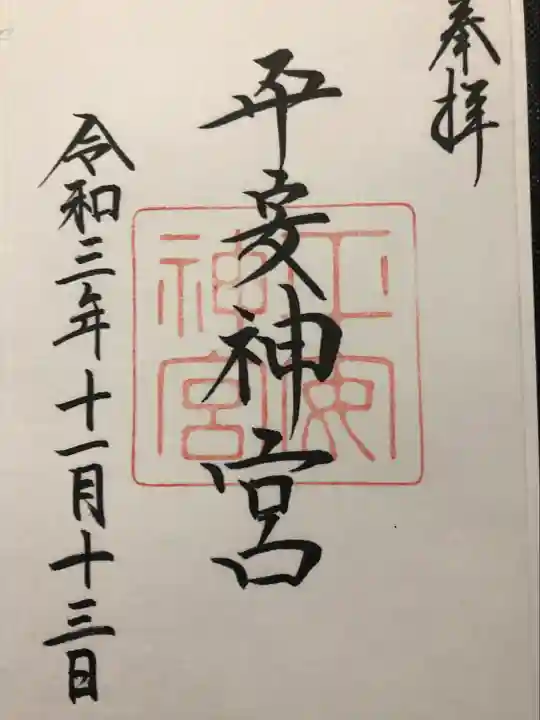 奉拝
平安神宮
平安神宮
令和三年十一月十三日